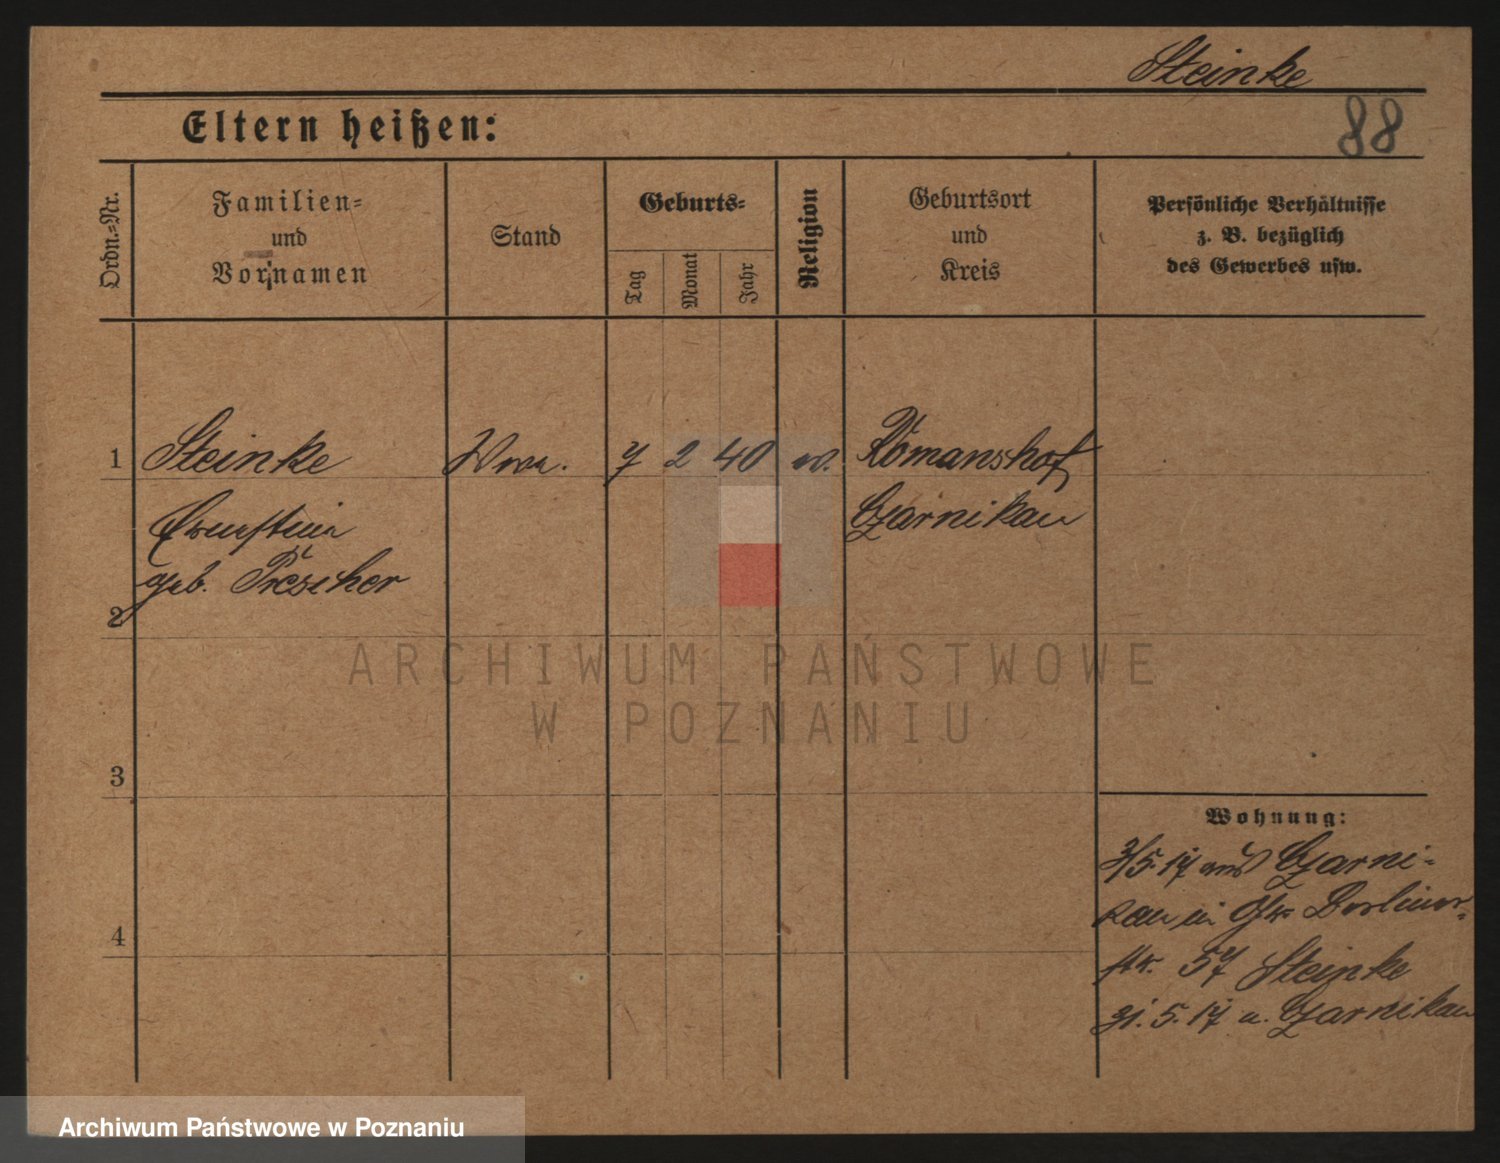 Steinke
Eltern heißen:
88
Ordn.-Nr.
Familien-
und
Vornamen
Stand
Geburts-
Tag
Monat
Jahr
Religion
Geburtsort
und
Kreis
Persönliche Verhältnisse
z. B. bezüglich
des Gewerbes usw.
1
Steinke
Wwe.
7
2
40
ev.
Romanshof
Czarnikau
Ernestine
geb. Prescher
2
ARCHIWUM PAŃSTWOWE
W POZNANIU
3
Wohnung:
3/5. 17 aus Czarni-
kau in Berliner-
4
str. 57 Steinke
31. 5. 17 n. Czarnikau
Archiwum Państwowe w Poznaniu